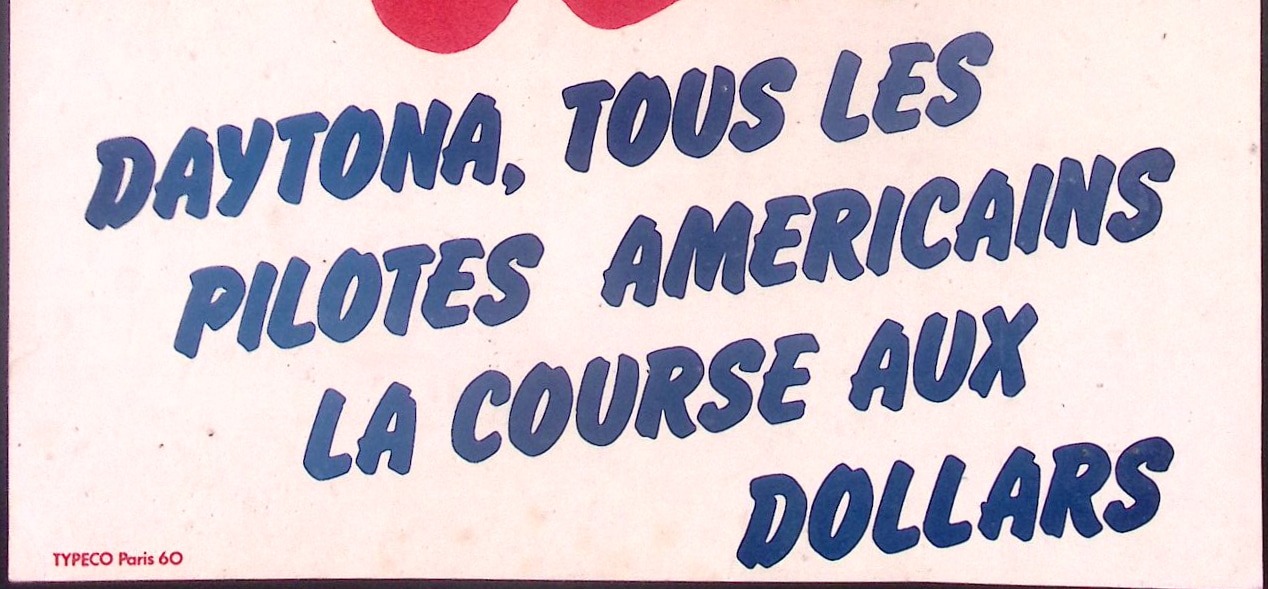 DAYTONA, TOUS LES
PILOTES AMERICAINS
LA COURSE AUX
DOLLARS
TYPECO Paris 60